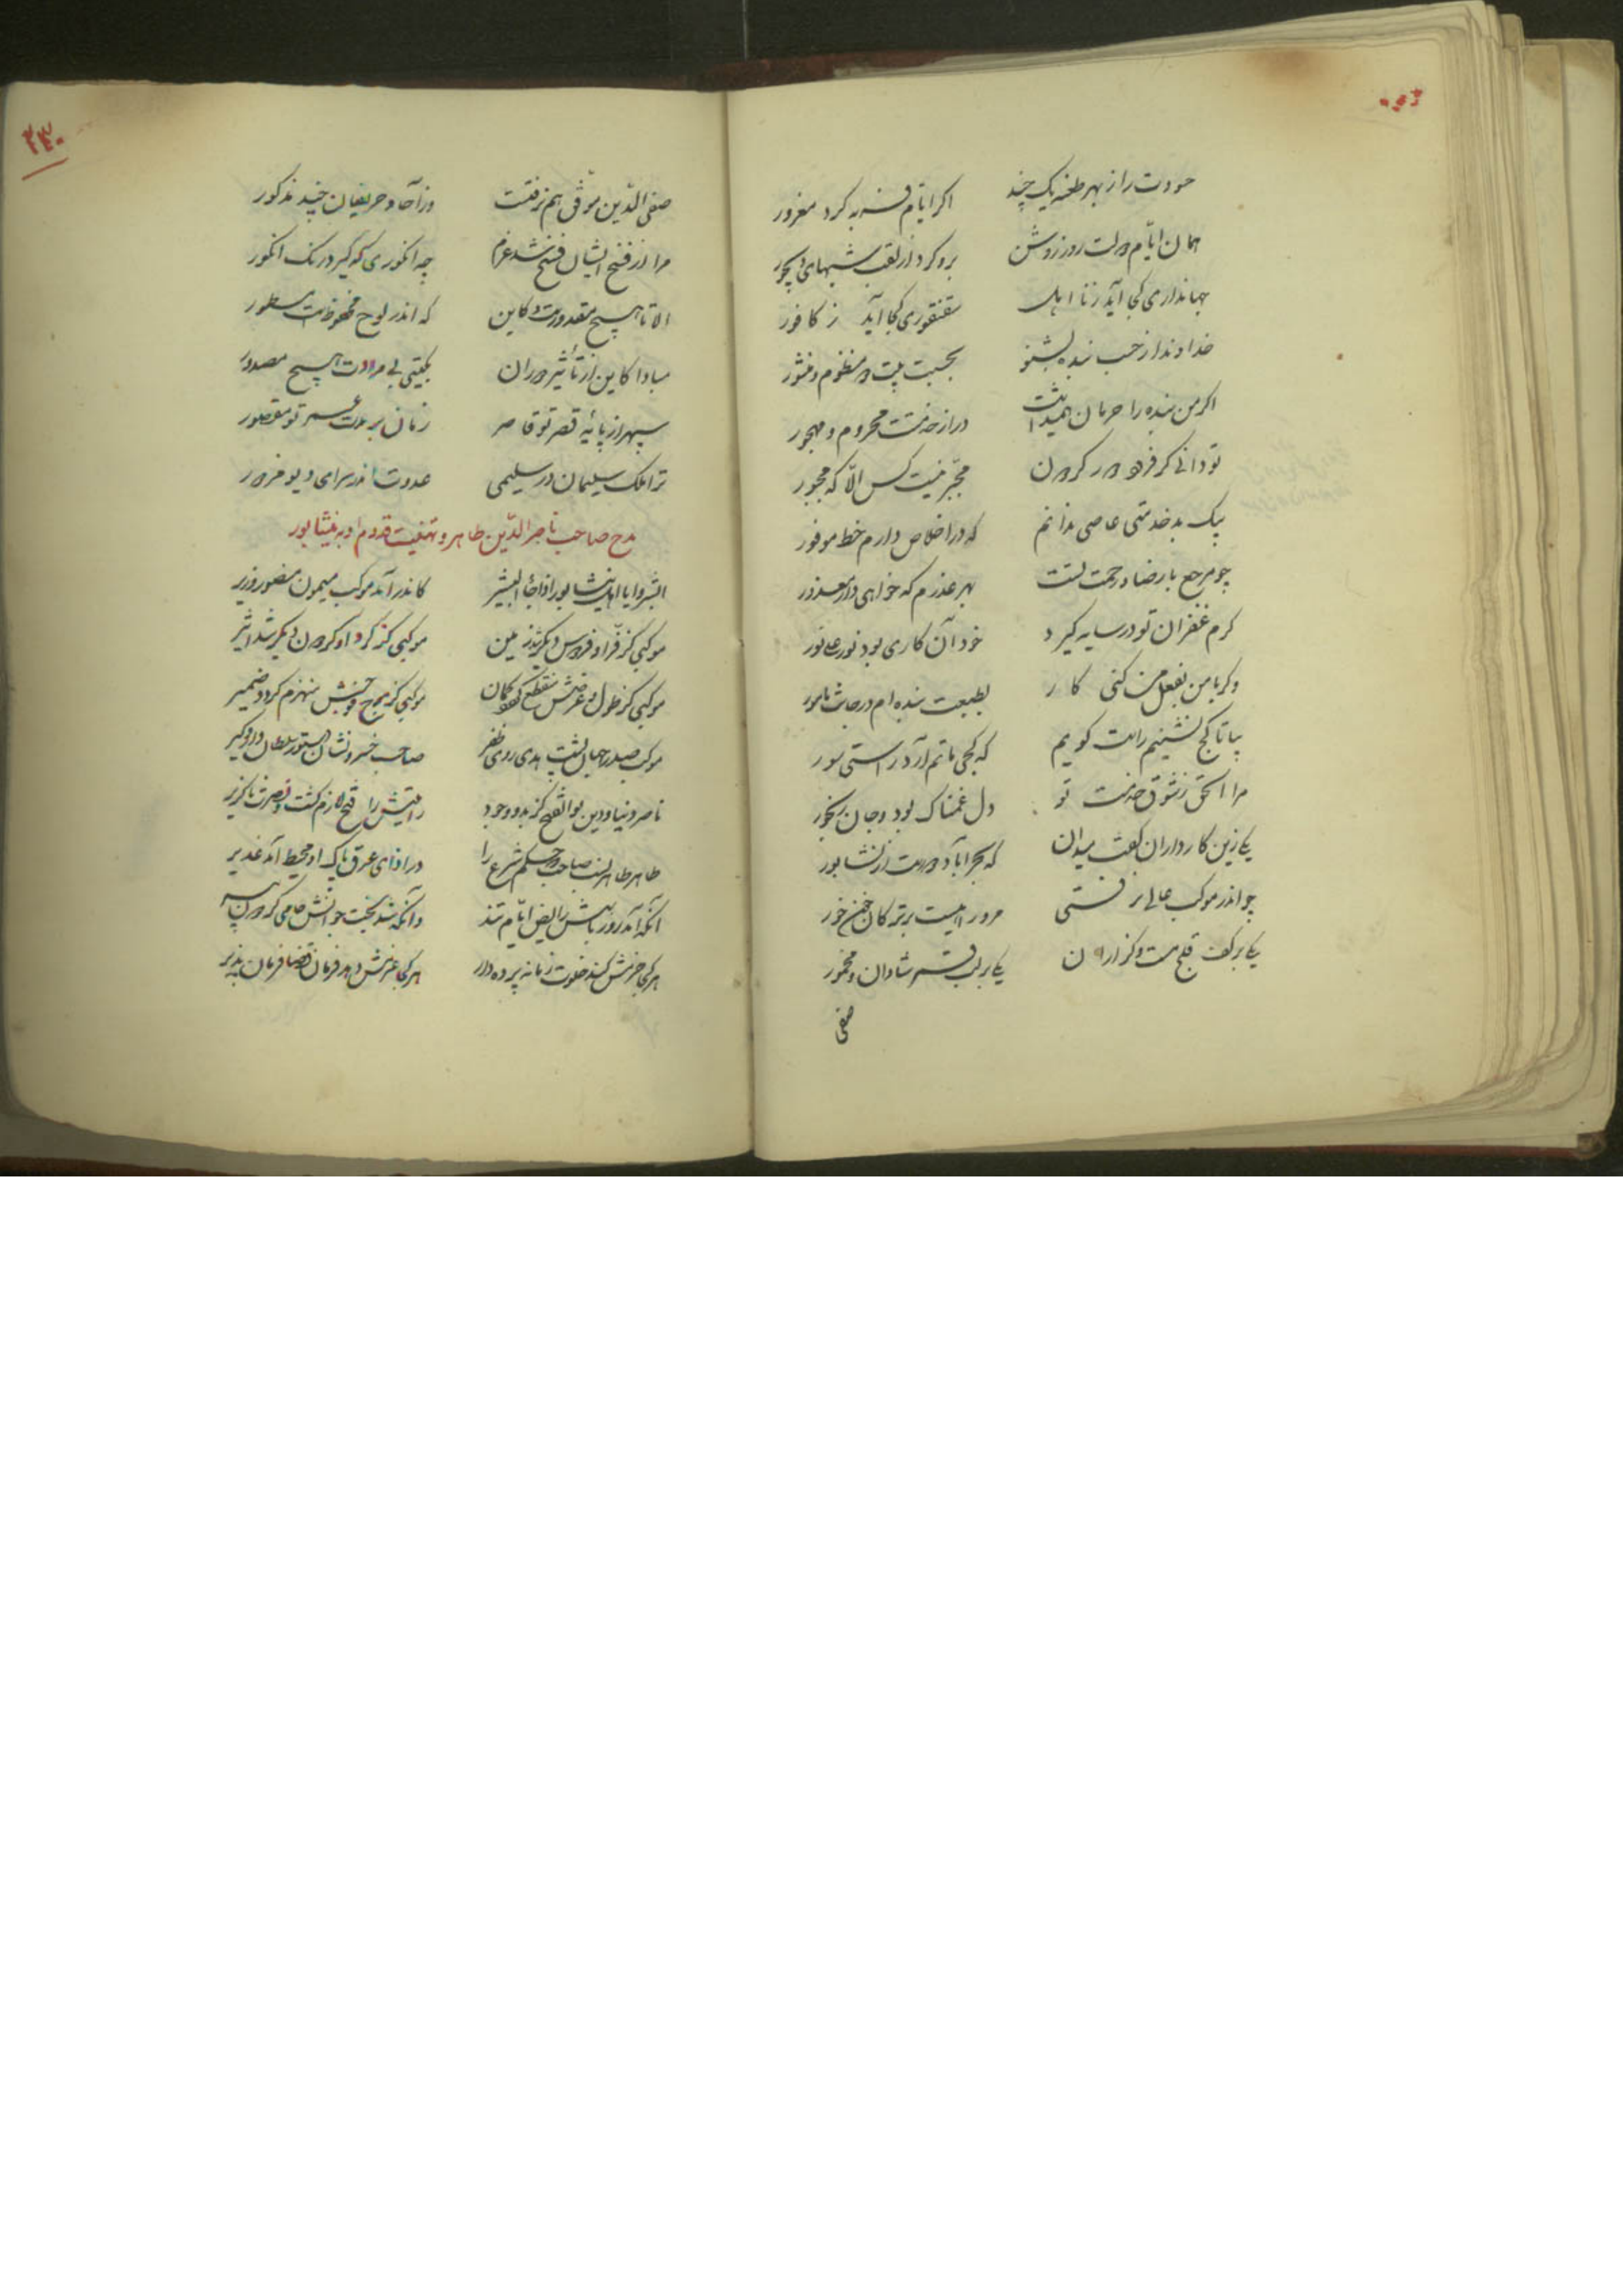 حسودت را ز بهر طعنه یک چند اکر ایام فربه کرد مغرور
همان ایام دولت روز روشن برو کرد از تعب شبهای دیجور
جهانداری کجا آید ز نا اهل سقنقوری کجا آید ز کافور
خداوندا ز حسب بنده بشنو بحسبت بیت در منظوم و منثور
اکر من بنده را حرمان همیداشت در از خدمت محروم و مهجور
تو دانی کز فرود دور کردون مخیر نیست کس الا که مجبور
بیک بد خدمتی عاصی مدانم که در اخلاص دارم خط موفور
چو مرجع با رضا و رحمت تست بهر عذرم که خواهی دار معذور
کرم غفران تو در سایه کیرد خود آن کاری بود نور علی نور
وکر با من بفعل من کنی کار بطبیعت بنده ام در جانت مامور
بیا تا کج نشینیم راست کویم که کجی ماتم آرد راستی سور
مرا الحق ز شوق خدمت تو دل غمناک بود و جان رنجور
یکی زین کارداران کفت میدان که بحرآباد دورست از نشابور
چو اندر موکب عالی نرفتی مرو راهیست پر ترکان خونخور
یکی بر کف قدح مست و کذاران یکی بر لب قسم شادان و مخمور
صفی
۲۳۰
صفی الدین موفق هم نرفتست وز آحاد حریفان چند مذکور
مرا از فتح ایشان فسخ شد عزم چه انکوری که کیرد رنک انکور
الا تا هیچ مقدورست و کاین که اندر لوح محفوظست مسطور
مبادا کاین از تأثیر دوران بکیتی بی مرادت هیچ مصدور
سپهر از پایهٔ قصر تو قاصر زمان بر مدت عمر تو مقصور
ترا ملک سلیمان در سلیمی عدوت اندر سرای دیو مزدور
مدح صاحب ناصر الدین طاهر و تهنیت قدوم او به نیشابور
ابشروا یا اهل نیشابور اذا جاء البشیر کاندر آمد موکب میمون منصور وزیر
موکبی کز فر او فردوس دیکر شد زمین موکبی کز کرد او کردون دیکر شد اثیر
موکبی کز طول و عرضش منقطع کردد کمان موکبی کز موج فوجش منهزم کردد ضمیر
موکب صدر جهان پشت هدی روی ظفر صاحب خسرو نشان دستور سلطان دار و کیر
ناصر دنیا و دین بوالفتح کز بدو وجود رایتش را فتح لازم کشت و نصرت ناکزیر
طاهر طاهر نسب صاحب که حکم شرع را در اذای عرق پاک او محیط آمد غدیر
آنکه آمد روز باسش رایض ایام تند وآنکه شد بخت جوانش حامی کردون پیر
هر کجا حزمش کند خلوت زمانه پرده دار هر کجا عزمش دهد فرمان قضا فرمان پذیر